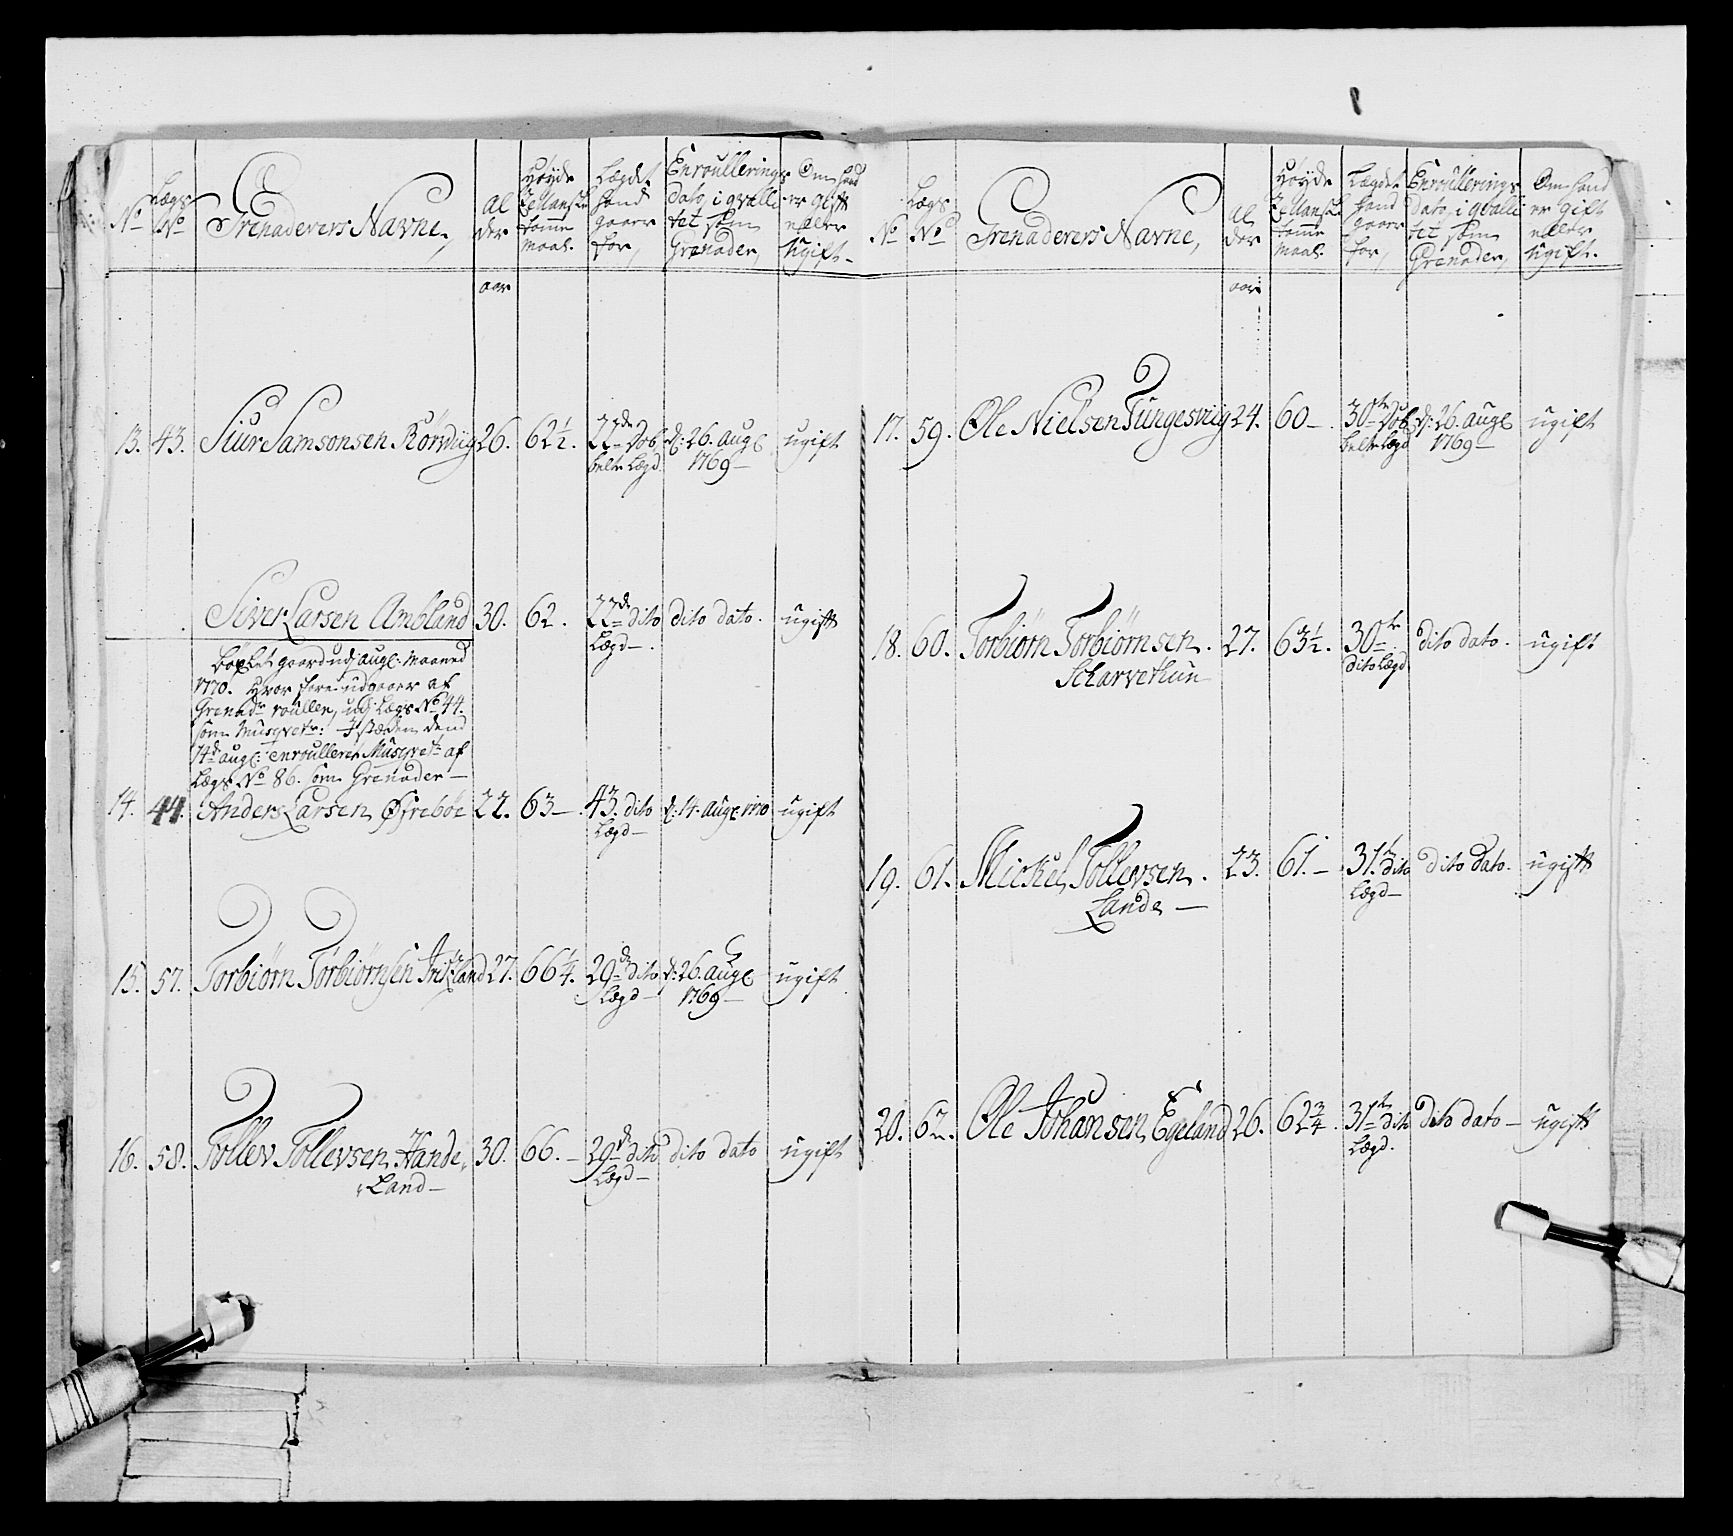 No Lægs No Grenaderers Navne, Al der Høyde Sællansk tomme Maal. Lægdet hand gaaer for, Enroullerings Dato, i qvalli tet som Grenader, Om hand er gift eller Ugift.
aar
13. 43. Siur Samsonsen Rörviig 26. 62 1/2. 22de Dob belte Lægd d: 26. Aug 1769 ugift
Siver Larsen Ambland 30. 62. 22de dito Lægd dito dato. ugift
gaard udj Aug: Maaned
1770. Hvor fore udgaaer af
Grenadr roullen, udj Lægs No 44.
som Musqvetr: I stæden dend
14de Aug: enroulleret Musqvetr af
Lægs No 86. som Grenader
14. 44. Anders Larsen Øfrebøe 22. 63 43. dito Lægd d: 14. Aug: 1770 ugift
15. 57. Torbiørn Torbiørnsen 27. 66 1/4. 29de dito Lægd d: 26. Aug 1769 ugift
16. 58. Tollev Tollevsen Hande
Land 30. 66. 29de dito Lægd dito dato ugift
No Lægs No Grenaderers Navne, Al der Høyde Sællansk tomme Maal. Lægdet hand gaaer for, Enroullerings Dato, i qvalli tet som Grenader, Om hand er gift eller Ugift.
aar
17. 59. Ole Nielsen Tungesviig 24. 60 30te Dob belte Lægd d: 26. Aug 1769 ugift
18. 60. Torbiørn Torbiørnsen
Scharvethun 27. 63 1/2. 30te dito Lægd dito dato. ugift
19. 61. Mickel Tollevsen
Lande 23. 61. 31te dito Lægd dito dato. ugift
20. 62. Ole Johansen Egeland 26. 62 3/4. 31te dito Lægd. dito dato ugift